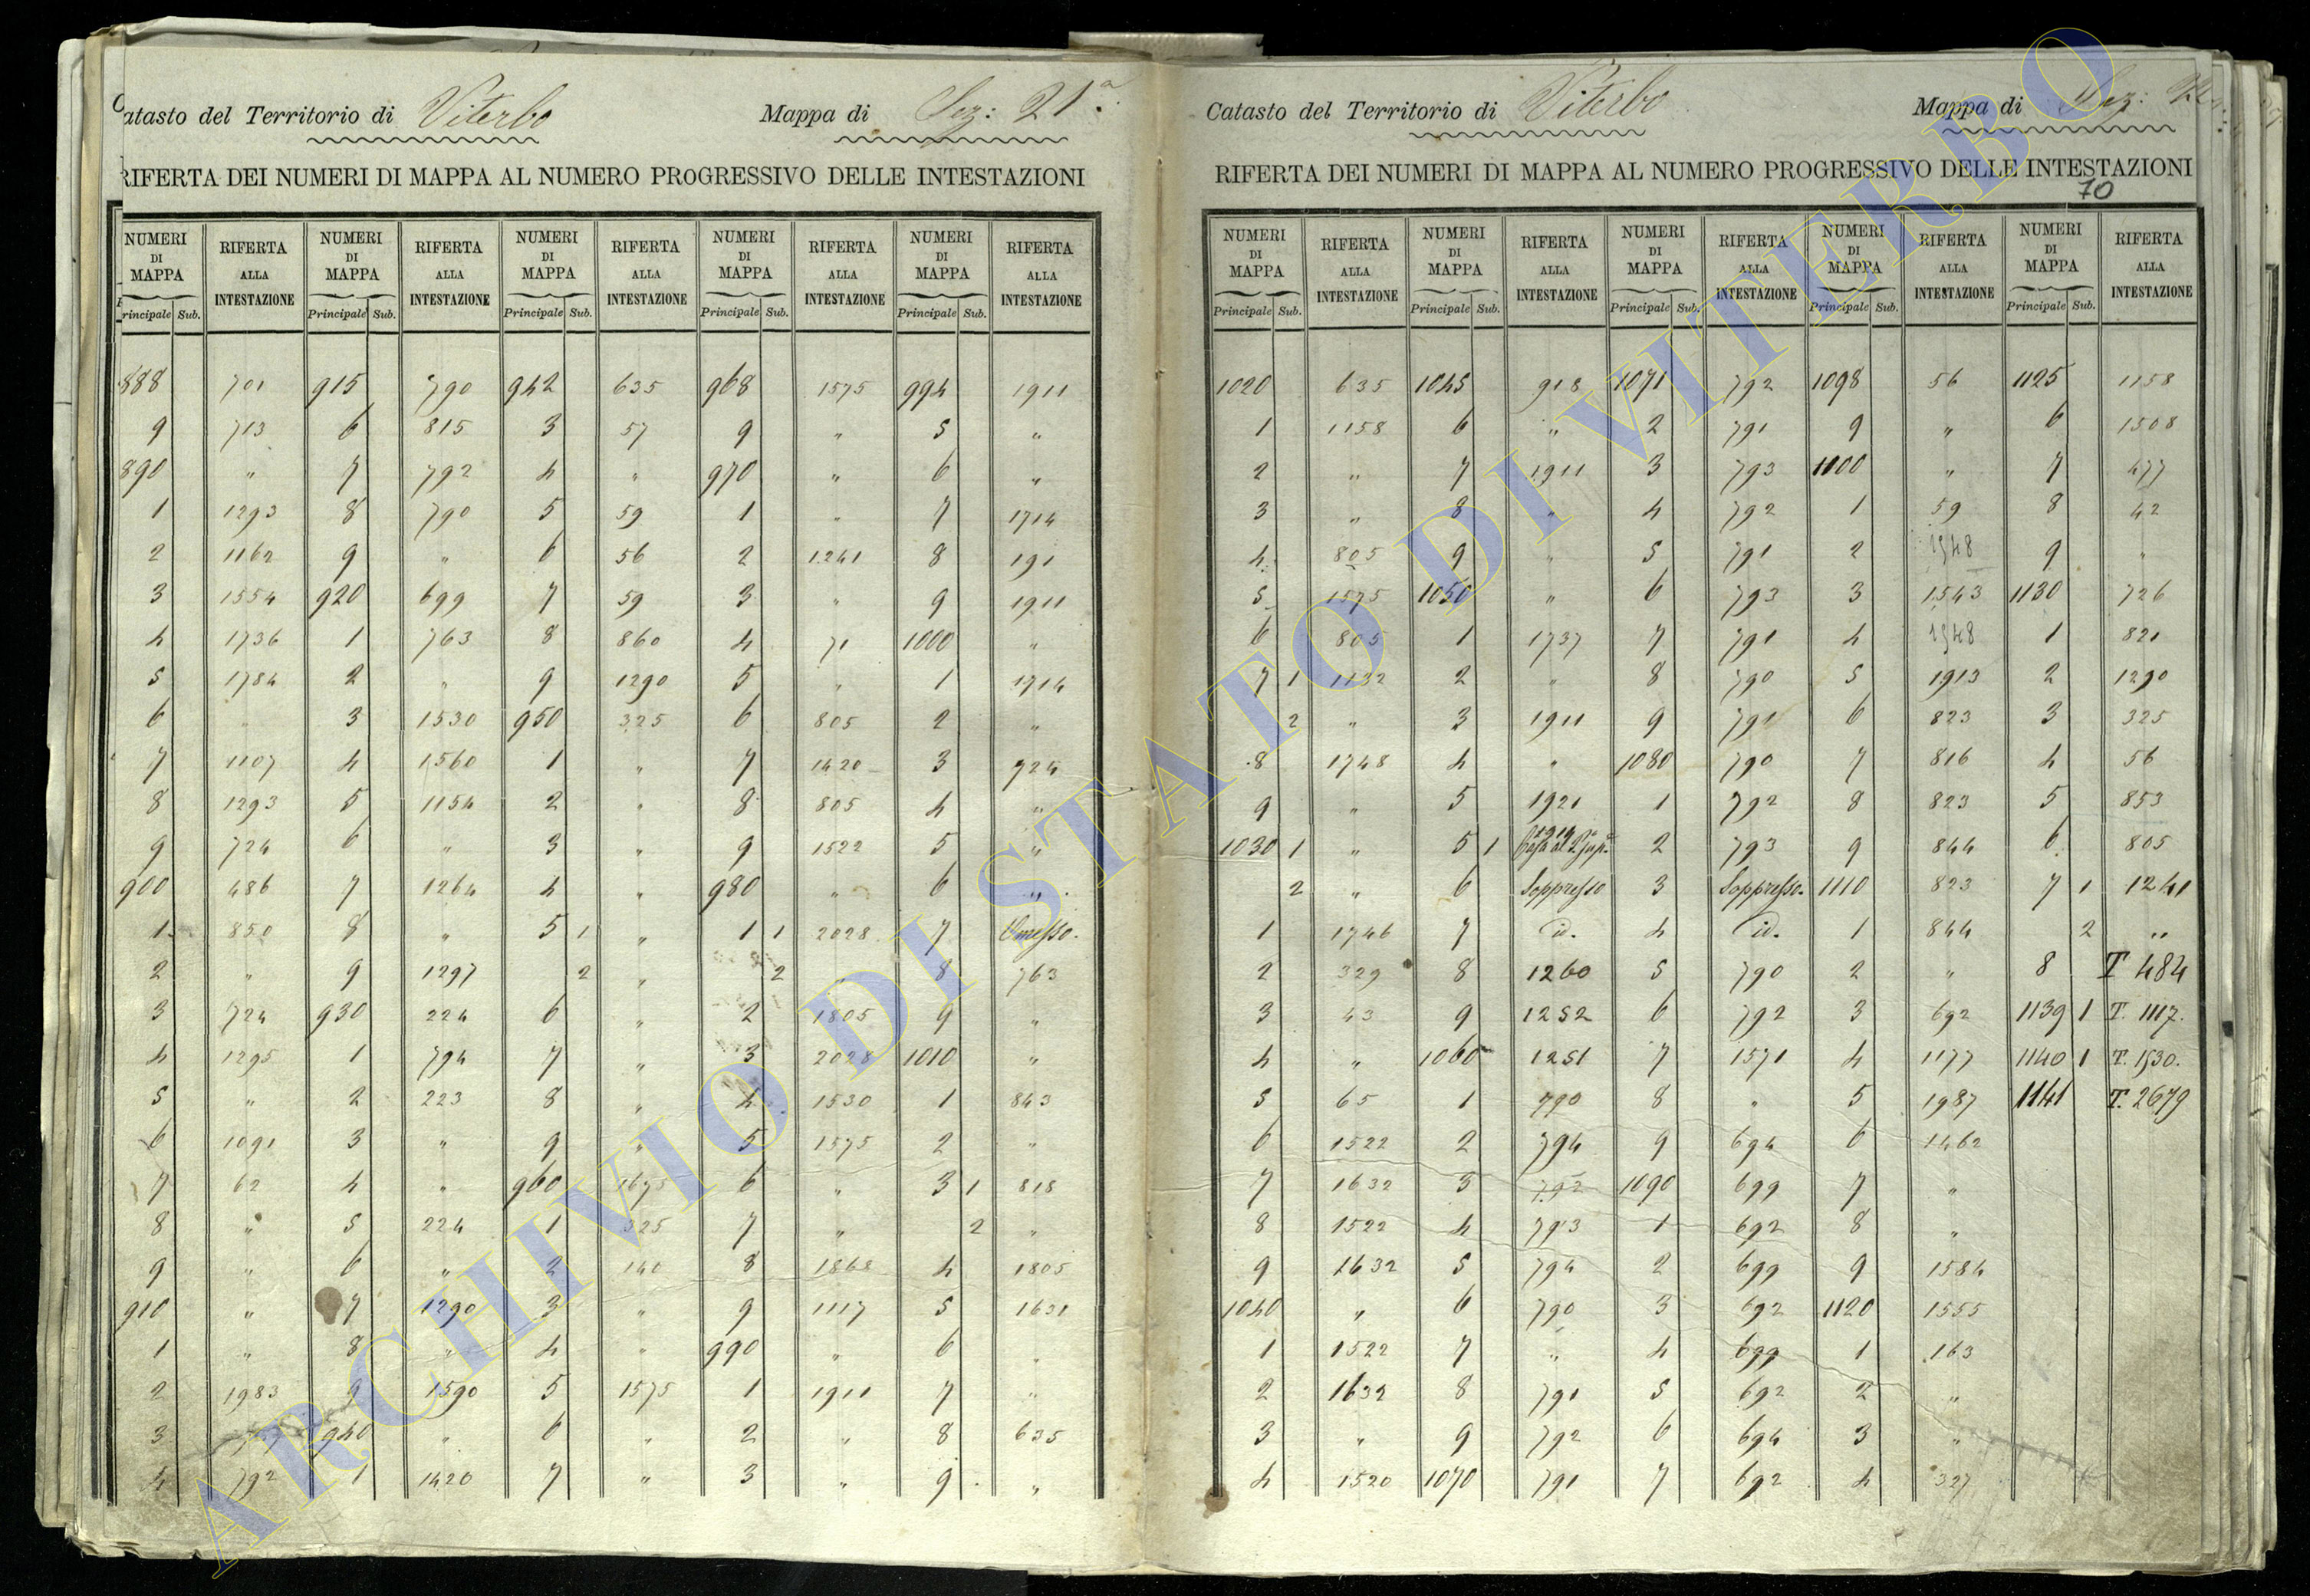 Catasto del Territorio di Viterbo Mappa di Sez: 21.ª
RIFERTA DEI NUMERI DI MAPPA AL NUMERO PROGRESSIVO DELLE INTESTAZIONI
NUMERI RIFERTA NUMERI RIFERTA NUMERI RIFERTA NUMERI RIFERTA NUMERI RIFERTA
DI ALLA DI ALLA DI ALLA DI ALLA DI ALLA
MAPPA INTESTAZIONE MAPPA INTESTAZIONE MAPPA INTESTAZIONE MAPPA INTESTAZIONE MAPPA INTESTAZIONE
Principale Sub. Principale Sub. Principale Sub. Principale Sub. Principale Sub.
888 701 915 790 942 635 968 1575 994 1911
9 713 6 815 3 57 9 " 5 "
890 " 7 792 4 " 970 " 6 "
1 1293 8 790 5 59 1 " 7 1714
2 1162 9 " 6 56 2 1241 8 191
3 1554 920 699 7 59 3 " 9 1911
4 1736 1 763 8 860 4 71 1000 "
5 1784 2 " 9 1290 5 " 1 1714
6 " 3 1530 950 325 6 805 2 "
7 1107 4 1560 1 " 7 1420 3 724
8 1293 5 1154 2 " 8 805 4 "
9 724 6 " 3 " 9 1522 5 "
900 486 7 1264 4 " 980 " 6 "
1 850 8 " 5 1 " 1 1 2028 7 Omesso.
2 " 9 1297 2 " 2 " 8 763
3 724 930 224 6 " 2 1805 9 "
4 1295 1 794 7 " 3 2028 1010 "
5 " 2 223 8 " 4 1530 1 843
6 1091 3 " 9 " 5 1575 2 "
7 62 4 " 960 1675 6 " 3 1 818
8 " 5 224 1 325 7 " 2 "
9 " 6 " 2 140 8 1868 4 1805
910 " 7 1290 3 " 9 1117 5 1631
1 " 8 " 4 " 990 " 6 "
2 1983 9 1590 5 1575 1 1911 7 "
3 940 " 6 " 2 " 8 635
4 792 1 1420 7 " 3 " 9 "
Catasto del Territorio di Viterbo Mappa di Sez:
RIFERTA DEI NUMERI DI MAPPA AL NUMERO PROGRESSIVO DELLE INTESTAZIONI
70
NUMERI RIFERTA NUMERI RIFERTA NUMERI RIFERTA NUMERI RIFERTA NUMERI RIFERTA
DI ALLA DI ALLA DI ALLA DI ALLA DI ALLA
MAPPA INTESTAZIONE MAPPA INTESTAZIONE MAPPA INTESTAZIONE MAPPA INTESTAZIONE MAPPA INTESTAZIONE
Principale Sub. Principale Sub. Principale Sub. Principale Sub. Principale Sub.
1020 635 1045 918 1071 792 1098 56 1125 1158
1 1158 6 " 2 791 9 " 6 1508
2 " 7 1911 3 793 1100 " 7 477
3 " 8 " 4 792 1 59 8 42
4 805 9 " 5 791 2 1548 9 "
5 1575 1050 " 6 793 3 1543 1130 726
6 805 1 1737 7 791 4 1548 1 821
7 1 1132 2 " 8 790 5 1913 2 1290
2 " 3 1911 9 791 6 823 3 325
8 1748 4 " 1080 790 7 816 4 56
9 " 5 1921 1 792 8 823 5 853
1030 1 " 5 1 1919 2 793 9 844 6 805
2 " 6 Soppresso 3 Soppresso. 1110 823 7 1 1241
1 1746 7 id. 4 id. 1 844 2 "
2 329 8 1260 5 790 2 " 8 T 484
3 43 9 1252 6 792 3 692 1139 1 T. 1117.
4 " 1060 1251 7 1571 4 1177 1140 1 T. 1530.
5 65 1 790 8 " 5 1987 1141 T. 2679
6 1522 2 794 9 694 6 1462
7 1632 3 792 1090 699 7 "
8 1522 4 793 1 692 8 "
9 1632 5 794 2 699 9 1584
1040 " 6 790 3 692 1120 1555
1 1522 7 " 4 699 1 163
2 1632 8 791 5 692 2 "
3 " 9 792 6 694 3 "
4 1520 1070 791 7 692 4 327
ARCHIVIO DI STATO DI VITERBO